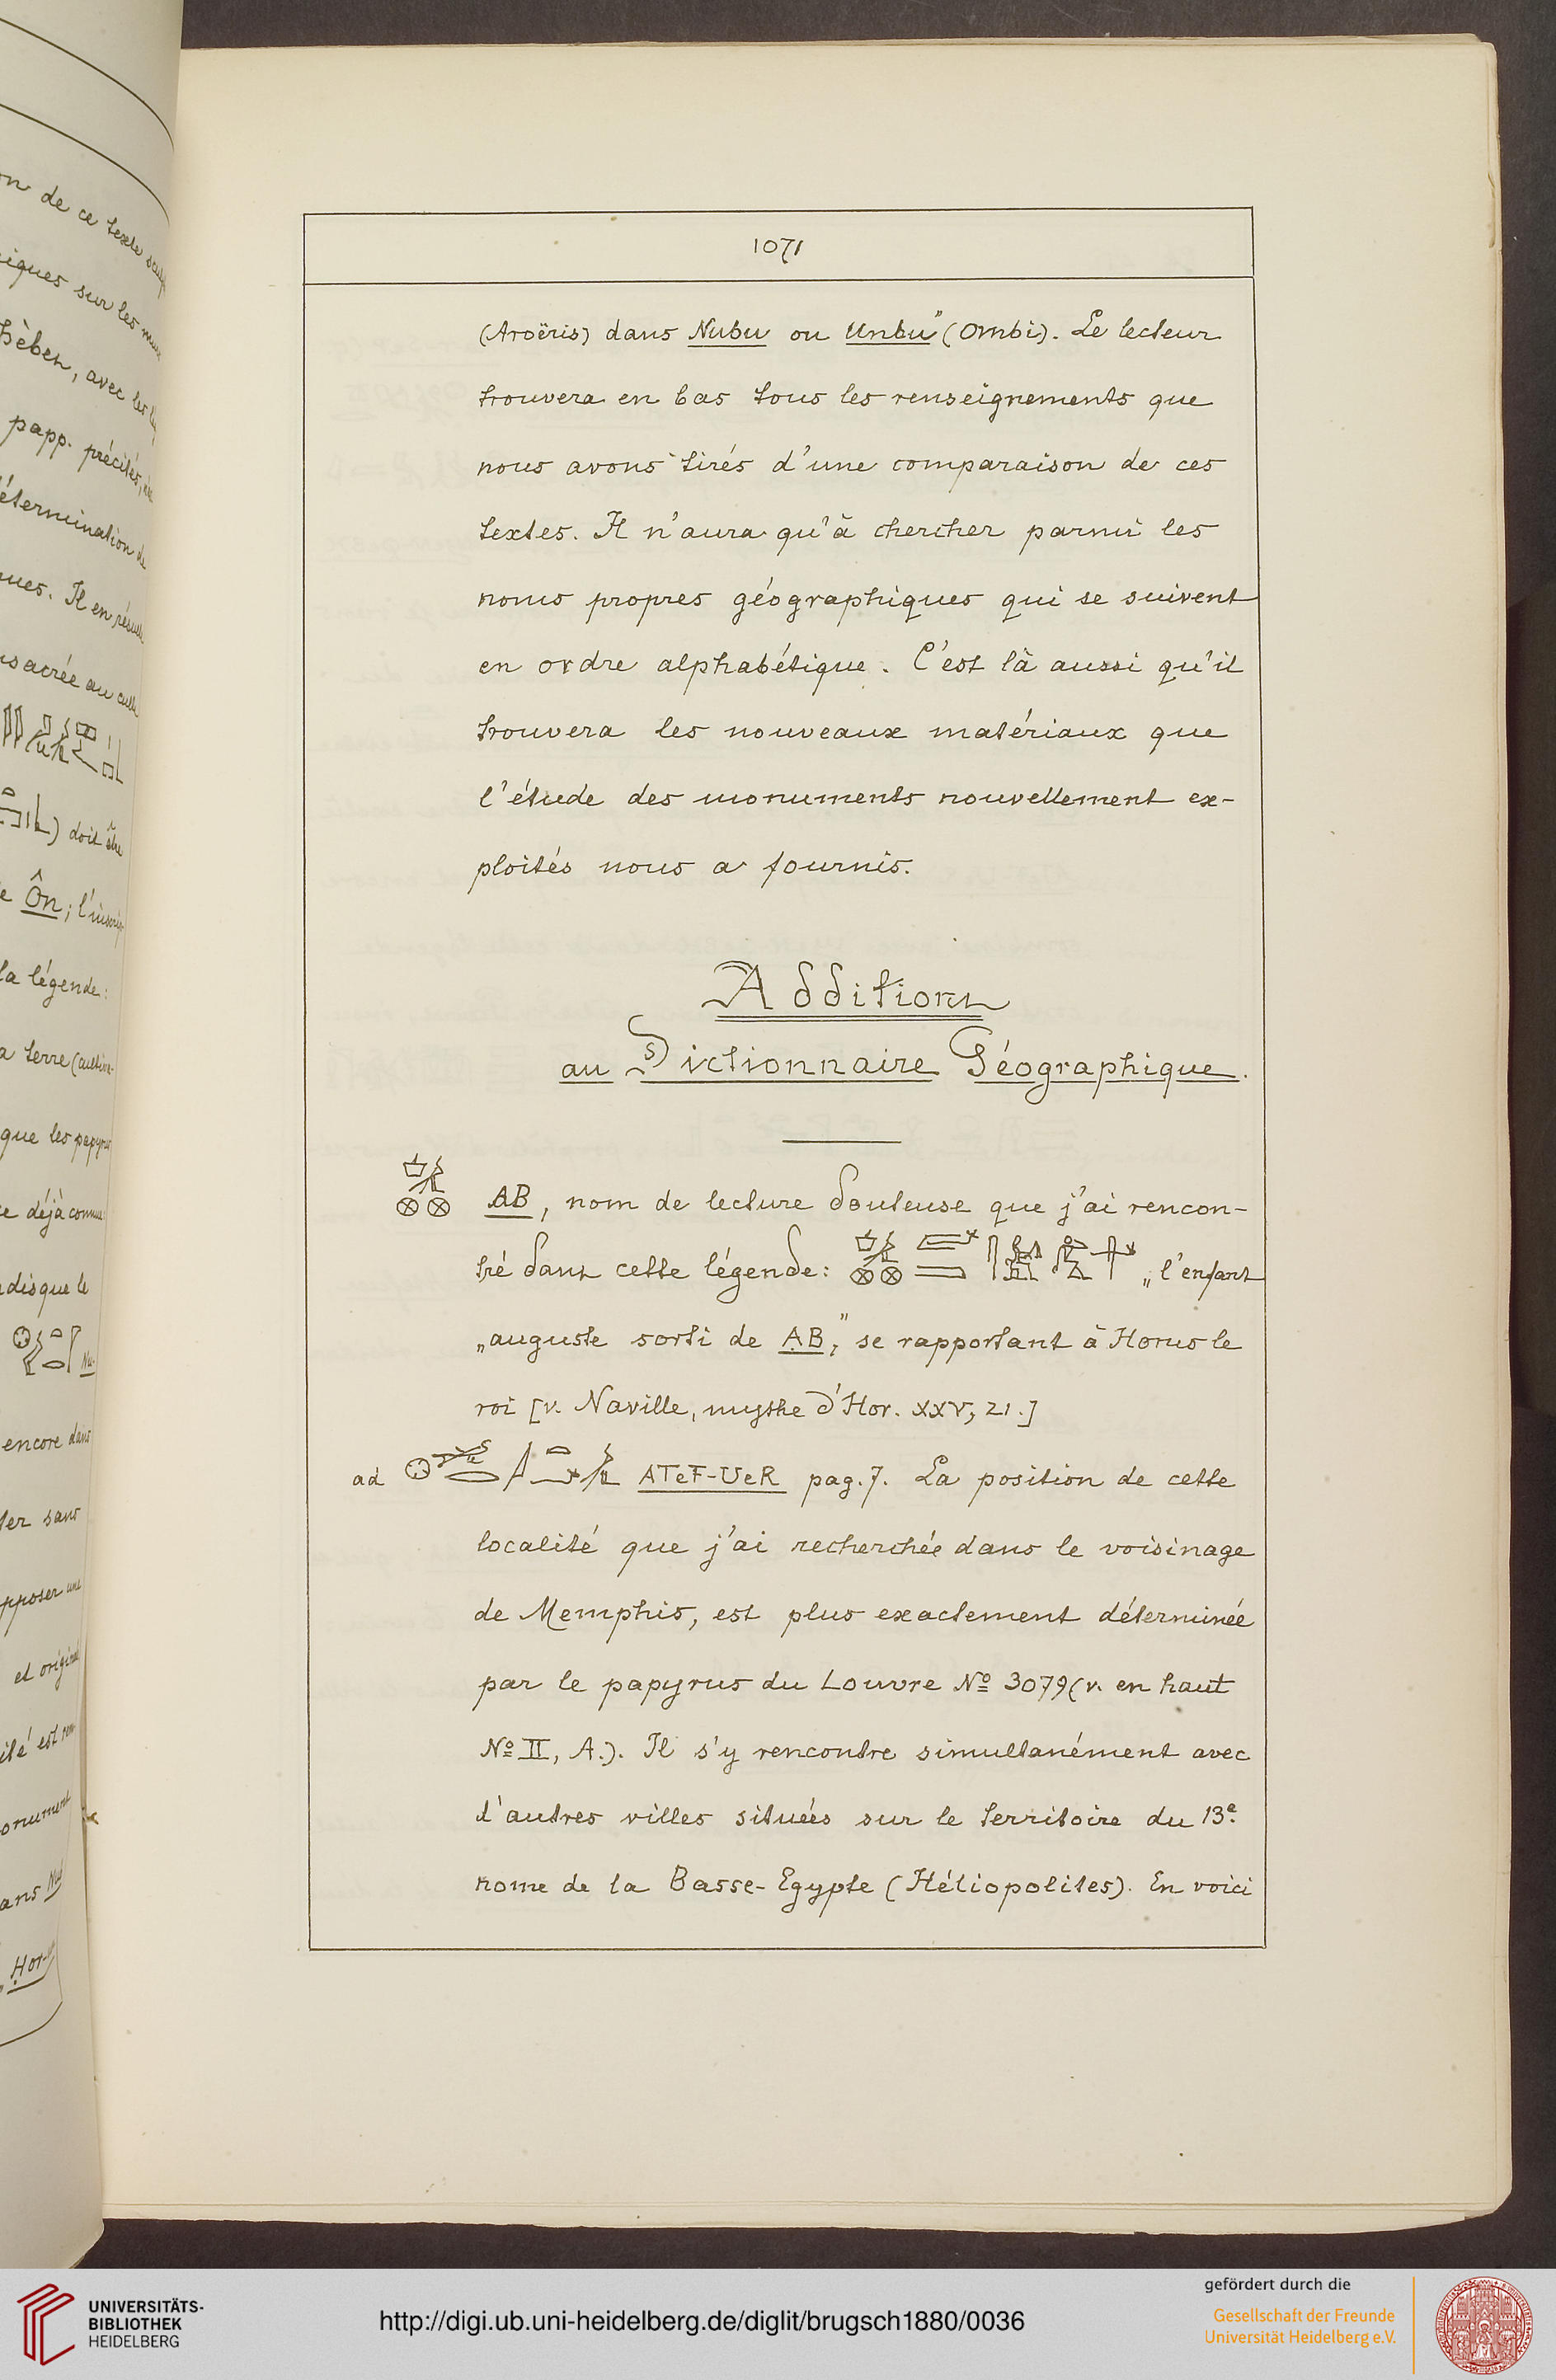 1071
(Aroëris) dans Nubu ou Unbu" (Ombi). Le lecteur
trouvera en bas tous les renseignements que
nous avons tirés d'une comparaison de ces
textes. Il n'aura qu'à chercher parmi les
noms propres géographiques qui se suivent
en ordre alphabétique. C'est là aussi qu'il
trouvera les nouveaux matériaux que
l'étude des monuments nouvellement ex-
ploités nous a fournis.
Additions
au Dictionnaire Géographique.
AB, nom de lecture douteuse que j'ai rencon-
tré dans cette légende: „l'enfant
„auguste sorti de AB," se rapportant à Horus le
roi [v. Naville, mythe d'Hor. XXV, 21.]
ad ATeF-UeR pag. 7. La position de cette
localité que j'ai recherchée dans le voisinage
de Memphis, est plus exactement déterminée
par le papyrus du Louvre Nº 3079 (v. en haut
Nº II, A.). Il s'y rencontre simultanément avec
d'autres villes situées sur le territoire du 13e
nome de la Basse-Egypte (Héliopolites). En voici
de ce texte
sur les
avec
papp. précités,
Il en
au
doit
Ôn;
la légende:
terre
que les
déjà
le
encore
sans
et
est
Hor-
UNIVERSITÄTS-
BIBLIOTHEK
HEIDELBERG
http://digi.ub.uni-heidelberg.de/diglit/brugsch1880/0036
gefördert durch die
Gesellschaft der Freunde
Universität Heidelberg e.V.